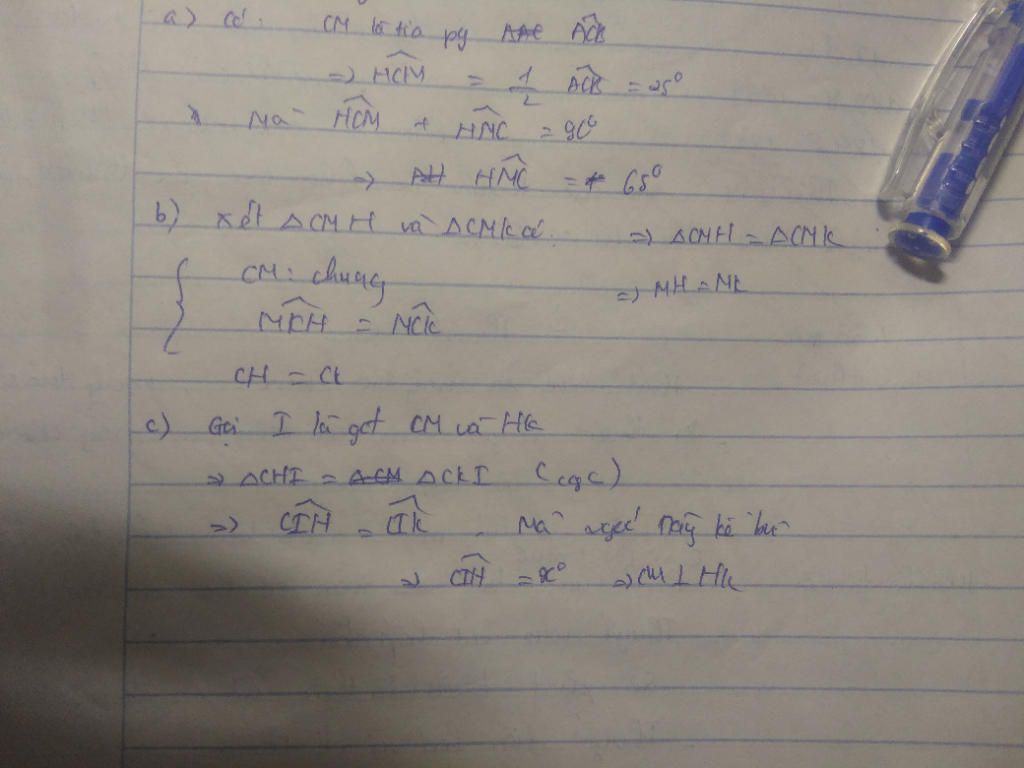 a) Có: CM là tia pg AAC ACB
=> HCM = 1/2 ACB = 25°
Mà HCM + HMC = 90°
=> AH HMC = 65°
b) Xét ΔCMH và ΔCMK có: => ΔCMH = ΔCMK
CM: chung => MH = MK
MCH = MCK
CH = CK
c) Gọi I là gđ CM và HK
=> ΔCHI = ΔCM ΔCKI (cgc)
=> CIH = CIK. Mà 2 góc này kề bù
=> CIH = 90° => CM ⊥ HK